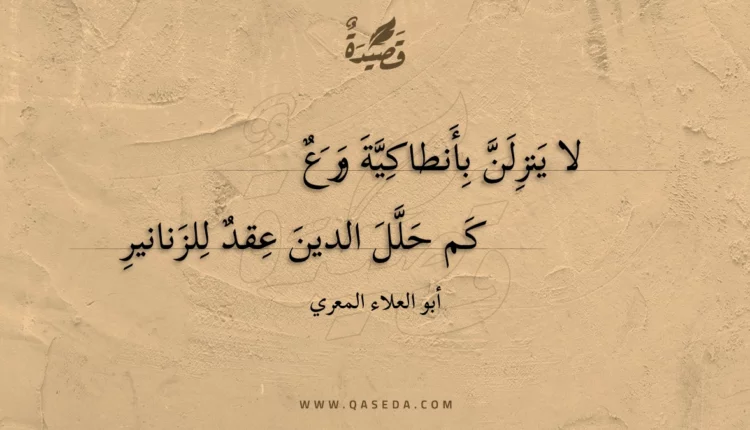 قَصِيدَةٌ
لا يَنزِلَنَّ بِأَنطاكِيَّةَ وَرَعٌ
كَم حَلَّلَ الدينَ عِقدٌ لِلزَنانيرِ
أبو العلاء المعري
WWW.QASEDA.COM